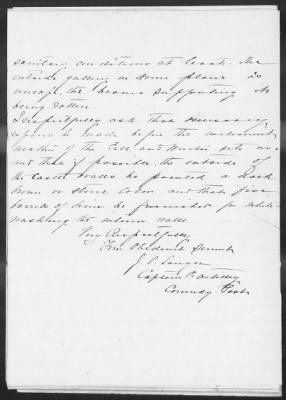 sanitary conditions at least. The
outside gallery in some places is
unsafe, the beams supporting it
being rotten.
I respectfully ask that necessary
repairs be made before the inclement
weather of the Fall and Winter sets in
and that if possible, the outside of
the Castle walls be painted a dark
brown or stone color and that five
barrels of lime be furnished for white
washing the interior walls.
Very Respectfully
Your Obedient Servant
J. P. Sanger
Captain 1st Artillery
Commdg Post